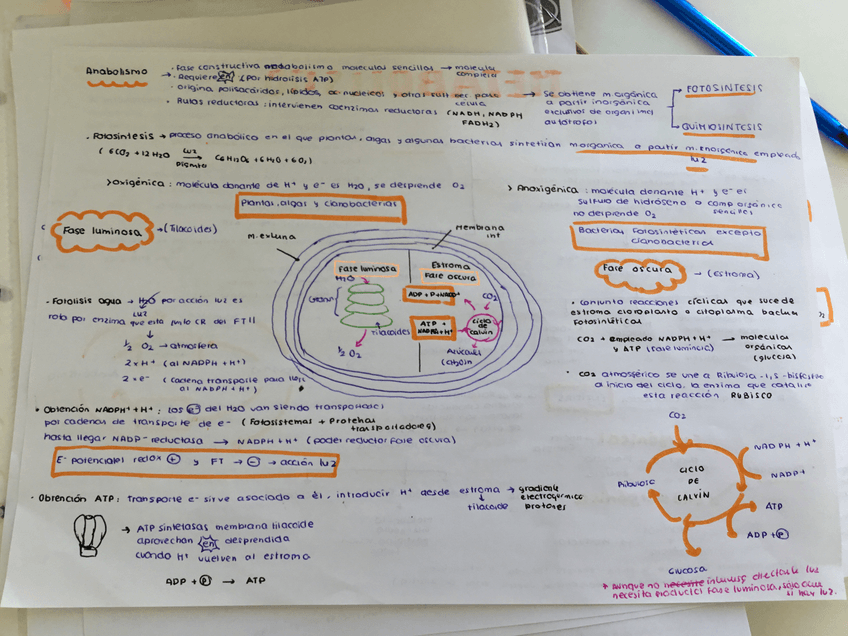 Anabolismo
· Fase constructiva metabolismo moleculas sencillas → molecula compleja
· Requiere en (por hidrólisis ATP)
· Origina polisacáridos, lípidos, ac nucleicos y otras sust
· Rutas reductoras: intervienen coenzimas reductoras (NADH, NADPH
FADH2)
→ se obtiene m.orgánica
a partir inorgánica
exclusivos de organismos
autótrofos
FOTOSÍNTESIS
QUIMIOSINTESIS
· Fotosíntesis → proceso anabólico en el que plantas, algas y algunas bacterias sintetizan m organica a partir m. inorgánica empleando
luz
(6CO2 + 12H2O luz → C6H12O6 + 6H2O + 6O2)
>Oxigénica: molécula donante de H+ y e- es H2O, se desprende O2
Plantas, algas y cianobacterias
> Anoxigénica: molécula donante H+ y e- es
sulfuro de hidrógeno o comp orgánico
sencillos
no desprende O2
Bacterias fotosintéticas excepto
cianobacterias
Fase luminosa → (Tilacoides)
M.externa
Membrana
int
Fase luminosa
H2O
Grana
Tilacoides
½ O2
Estroma
Fase oscura
ADP + P + NADP+
ATP +
NADPH+H+
CO2
ciclo
de
calvin
Azúcares
Fase oscura → (estroma)
· Fotolisis agua → H2O por acción luz es
luz
roto por enzima que esta junto CR del FTII
½ O2 → atmosfera
2 x H+ (al NADPH + H+)
2 x e- (cadena transporte para
al NADPH + H+)
· conjunto reacciones cíclicas que sucede
estroma cloroplasto o citoplasma bacterias
fotosintéticas
CO2 + empleado NADPH + H+ → moleculas
y ATP (fase luminosa) orgánicas
(glucosa)
· CO2 atmosférico se une a Ribulosa -1,5-bisfosfato
a inicio del ciclo, la enzima que cataliza
esta reacción RUBISCO
· Obtención NADPH+ + H+: Los e- del H2O van siendo transportados
por cadenas de transporte de e- (Fotosistemas + Proteínas
transportadores)
hasta llegar NADP-reductasa → NADPH + H+ (poder reductor fase oscura)
E- potenciales redox + y FT → - → acción luz
· Obtención ATP: Transporte e- sirve asociado a él, introducir H+ desde estroma → gradiente
↓ electroquímico
tilacoide protones
→ ATP sintetasas membrana tilacoide
aprovechan en desprendida
cuando H+ vuelven al estroma
ADP + P → ATP
CO2
NADPH + H+
NADP+
Ribulosa
CICLO
DE
CALVÍN
ATP
ADP + P
GLUCOSA
* aunque no necesite directa luz
necesita productos fase luminosa, solo
si hay luz.